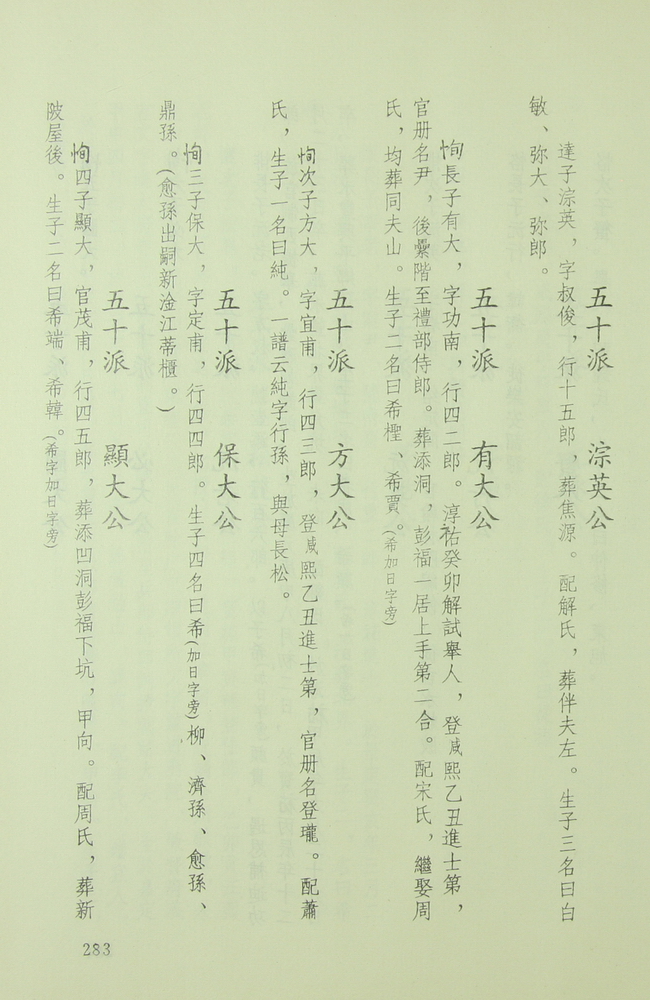 五十派　淙英公
達子淙英，字叔俊，行十五郎，葬焦源。配解氏，葬伴夫左。生子三名曰白
敏、弥大、弥郎。
五十派　有大公
恂長子有大，字功南，行四二郎。淳祐癸卯解試舉人，登咸熙乙丑進士第，
官册名尹，後纍階至禮部侍郎。葬添洞，彭福一居上手第二合。配宋氏，繼娶周
氏，均葬同夫山。生子二名曰希檉、希賈。(希加日字旁)
五十派　方大公
恂次子方大，字宜甫，行四三郎，登咸熙乙丑進士第，官册名登瓏。配蕭
氏，生子一名曰純。一譜云純字行孫，與母長松。
五十派　保大公
恂三子保大，字定甫，行四四郎。生子四名曰希(加日字旁)柳、濟孫、愈孫、
鼎孫。(愈孫出嗣新淦江蒂櫃。)
五十派　顯大公
恂四子顯大，官茂甫，行四五郎，葬添凹洞彭福下坑，甲向。配周氏，葬新
陂屋後。生子二名曰希端、希韓。(希字加日字旁)
283